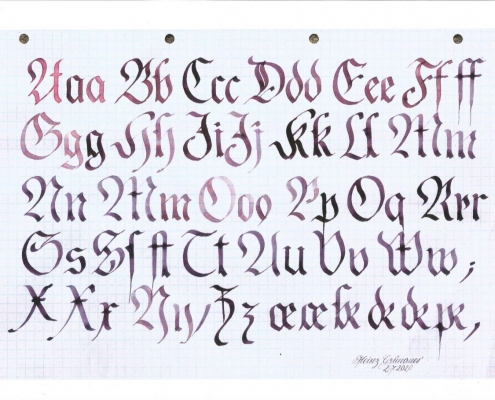 Aaa Bb Ccc Ddd Eee Ff ff
Ggg Hh Ji Jj Kk Ll Mm
Nn Mm Ooo Pp Qq Rrr
Ss Sſ ſt Tt Uu Vv Ww ;
X Xx Yy / Zz œ œ de de pe ,
Heinz Grünauer
2.7.2020